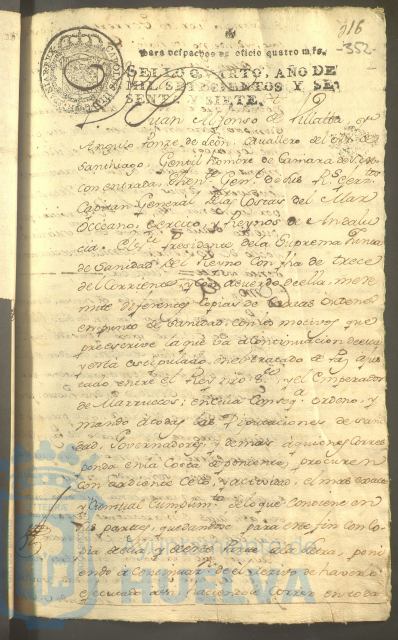 016
-352-
Para despachos de oficio quatro mrs.
SELLO QVARTO, AÑO DE
MIL SETECIENTOS Y SE-
SENTA Y SIETE.
Juan Alfonso de Villalta y
Angulo Ponze de Leon, Cavallero del
Santhiago, Gentil hombre de Camara
con entrada, Then. Gen. de sus Rs.
Capitan General de las Costas del Mar
Occeano, Exercito y Reynos de Andalu
cia. El Presidente de la Suprema Junta
de Sanidad del Reyno con fha de trece
del Corriente, y con acuerdo de ella, me re
mite diferentes copias de varias ordenes
en punto de Sanidad, con los motivos que
preescrive la que va a continuacion de
y está estipulado en el tratado de Paz ajus
tado entre el Rey nro Sr. y el Emperador
de Marruecos; en cuia conseqa. ordeno, y
mando a todas las Diputaciones de Sani
dad, Governadores, y demas a quienes corres
ponda en la Costa de Poniente, procuren
con ardiente Celo, y actividad, el mas exacto
y puntual Cumplimto. de lo que conviene en
sus partes, quedandose para este fin con Co
pia de ella y de este
endo a continuaz. de el recivo de haverlo
executado asi haciendola Correr en toda
Ayuntamiento de
HUELVA